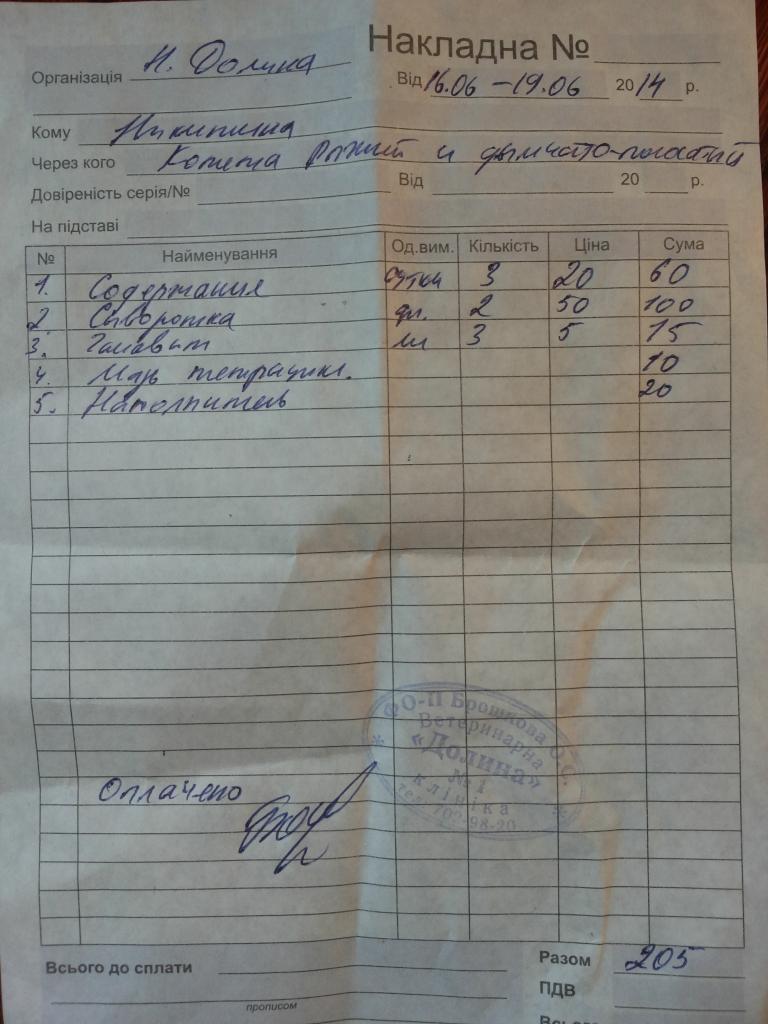 Накладна №
Організація Н. Долина
Від 16.06 – 19.06 2014 р.
Кому Никитина
Через кого Котята рыжий и дымчато-полосатый
Довіреність серія/№ Від 20 р.
На підставі
№ Найменування Од.вим. Кількість Ціна Сума
1. Содержания сутки 3 20 60
2 Сыворотка фл. 2 50 100
3. Гамавит мл 3 5 15
4. Мазь тетрацикл. 10
5. Наполнитель 20
ФО-П Брошкова О.С.
Ветеринарна
«Долина»
№ 1
клініка
тел. 702-98-20
Оплачено
Всього до сплати
прописом
Разом 205
ПДВ